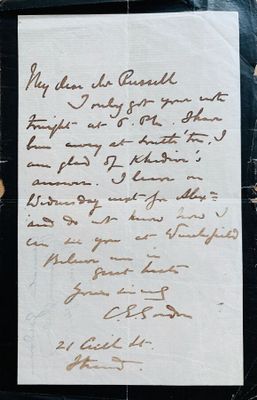 My dear Mr Russell
I only got your note
tonight at 6. Pm. I have
been away at South'ton, I
am glad of Khedive's
answer. I leave on
Wednesday next for Alex=
and do not know how I
can see you at
Believe me in
great haste
Yours sincerely
C. E. Gordon
21 Cecil St.
Strand.